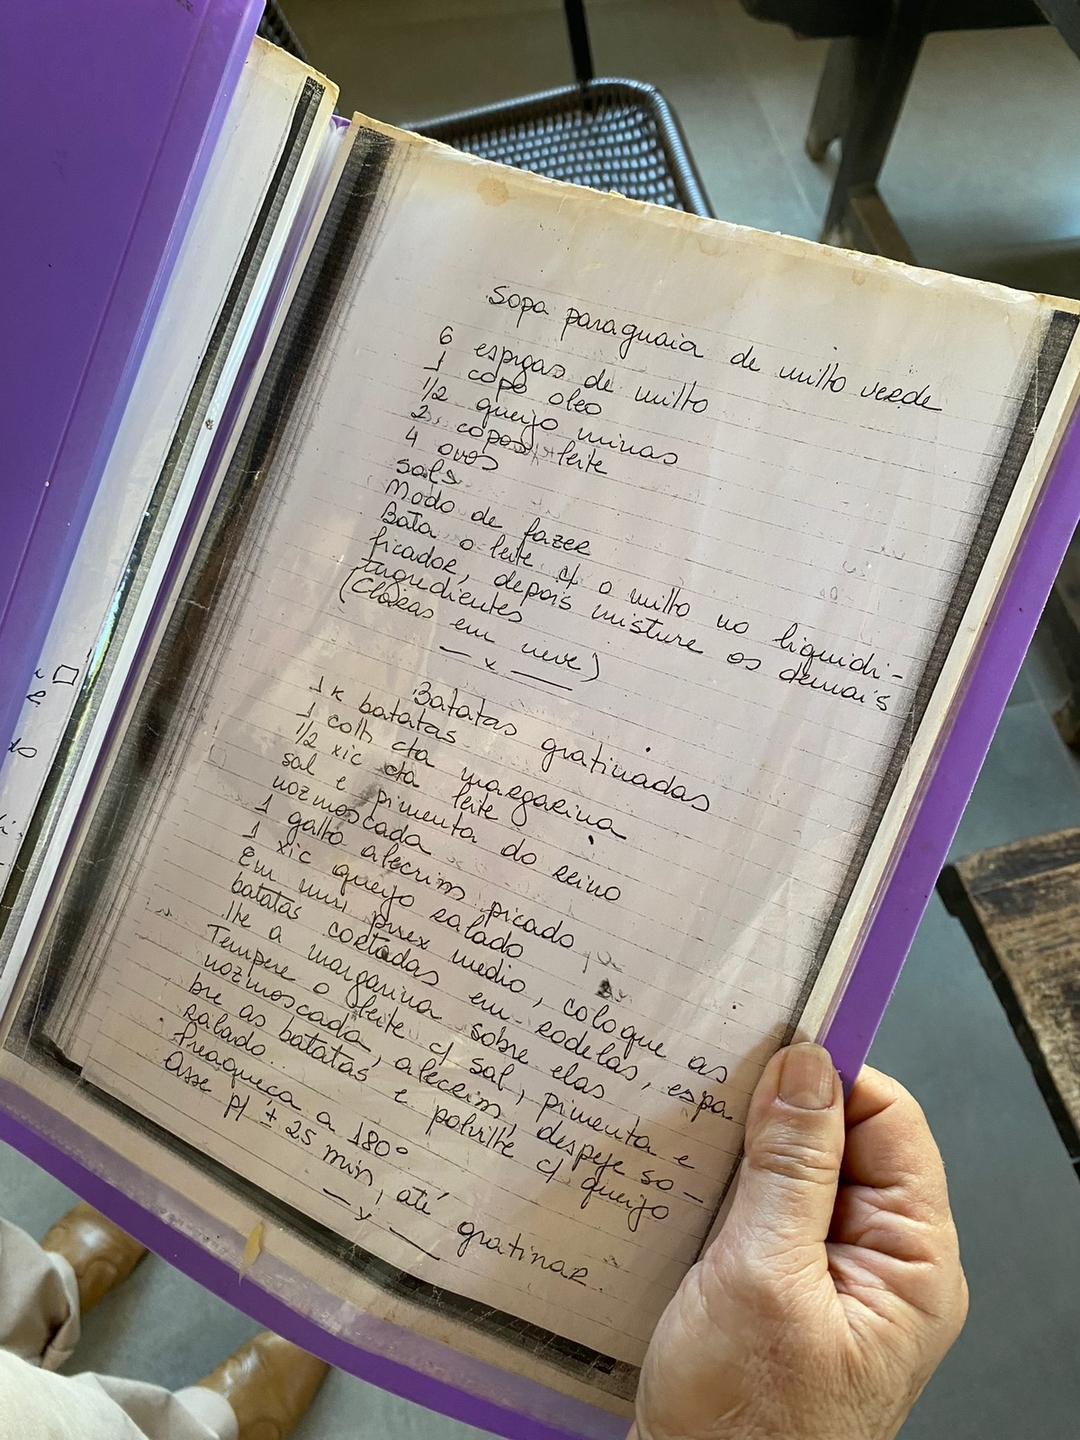 Sopa paraguaia de milho verde
6 espigas de milho
1 copo oleo
1/2 queijo minas
2 copos leite
4 ovos
sal
Modo de fazer
Bata o leite c/ o milho no liquidi-
ficador, depois misture os demais
ingredientes
(Claras em neve)
— x —
Batatas gratinadas
1 K batatas
1 colh cha margarina
1/2 xic cha leite
sal e pimenta do reino
nozmoscada
1 galho alecrim picado
1 xic queijo ralado
Em um pirex medio, coloque as
batatas cortadas em rodelas, espa
lhe a margarina sobre elas
Tempere o leite c/ sal, pimenta e
nozmoscada, alecrim, despeje so-
bre as batatas e polvilhe c/ queijo
ralado.
Preaqueça a 180°
Asse p/ ± 25 min, até gratinar.
— x —